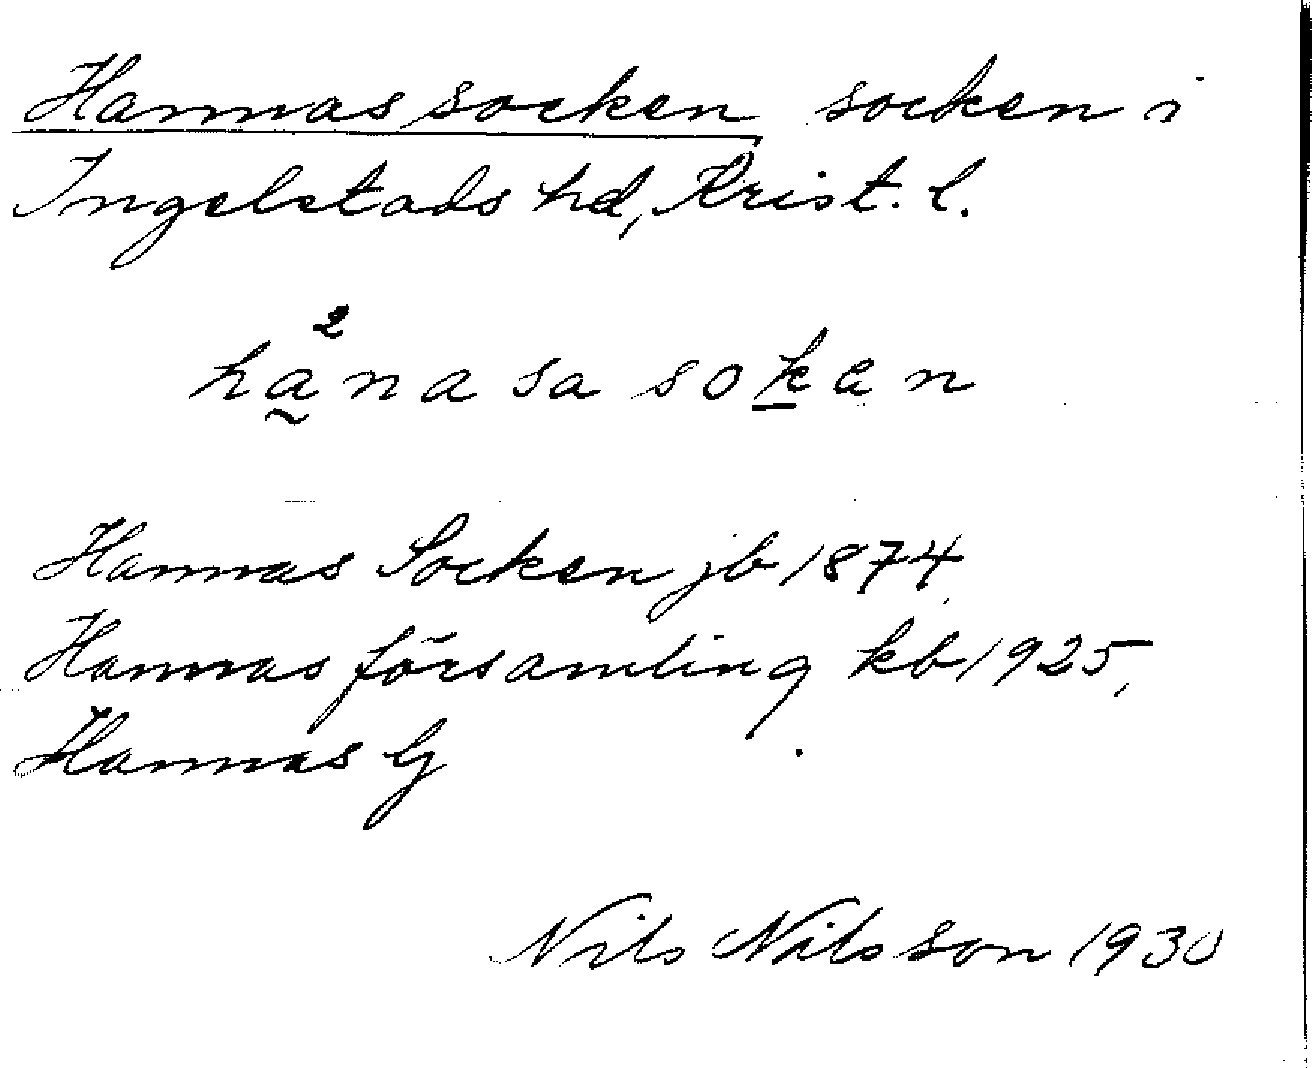 Hannas socken socken i
Ingelstads hd, Krist. l.
ha̰²nasa soḵen
Hannas Socken jb 1874,
Hannas församling kb 1925,
Hannas G
Nils Nilsson 1930